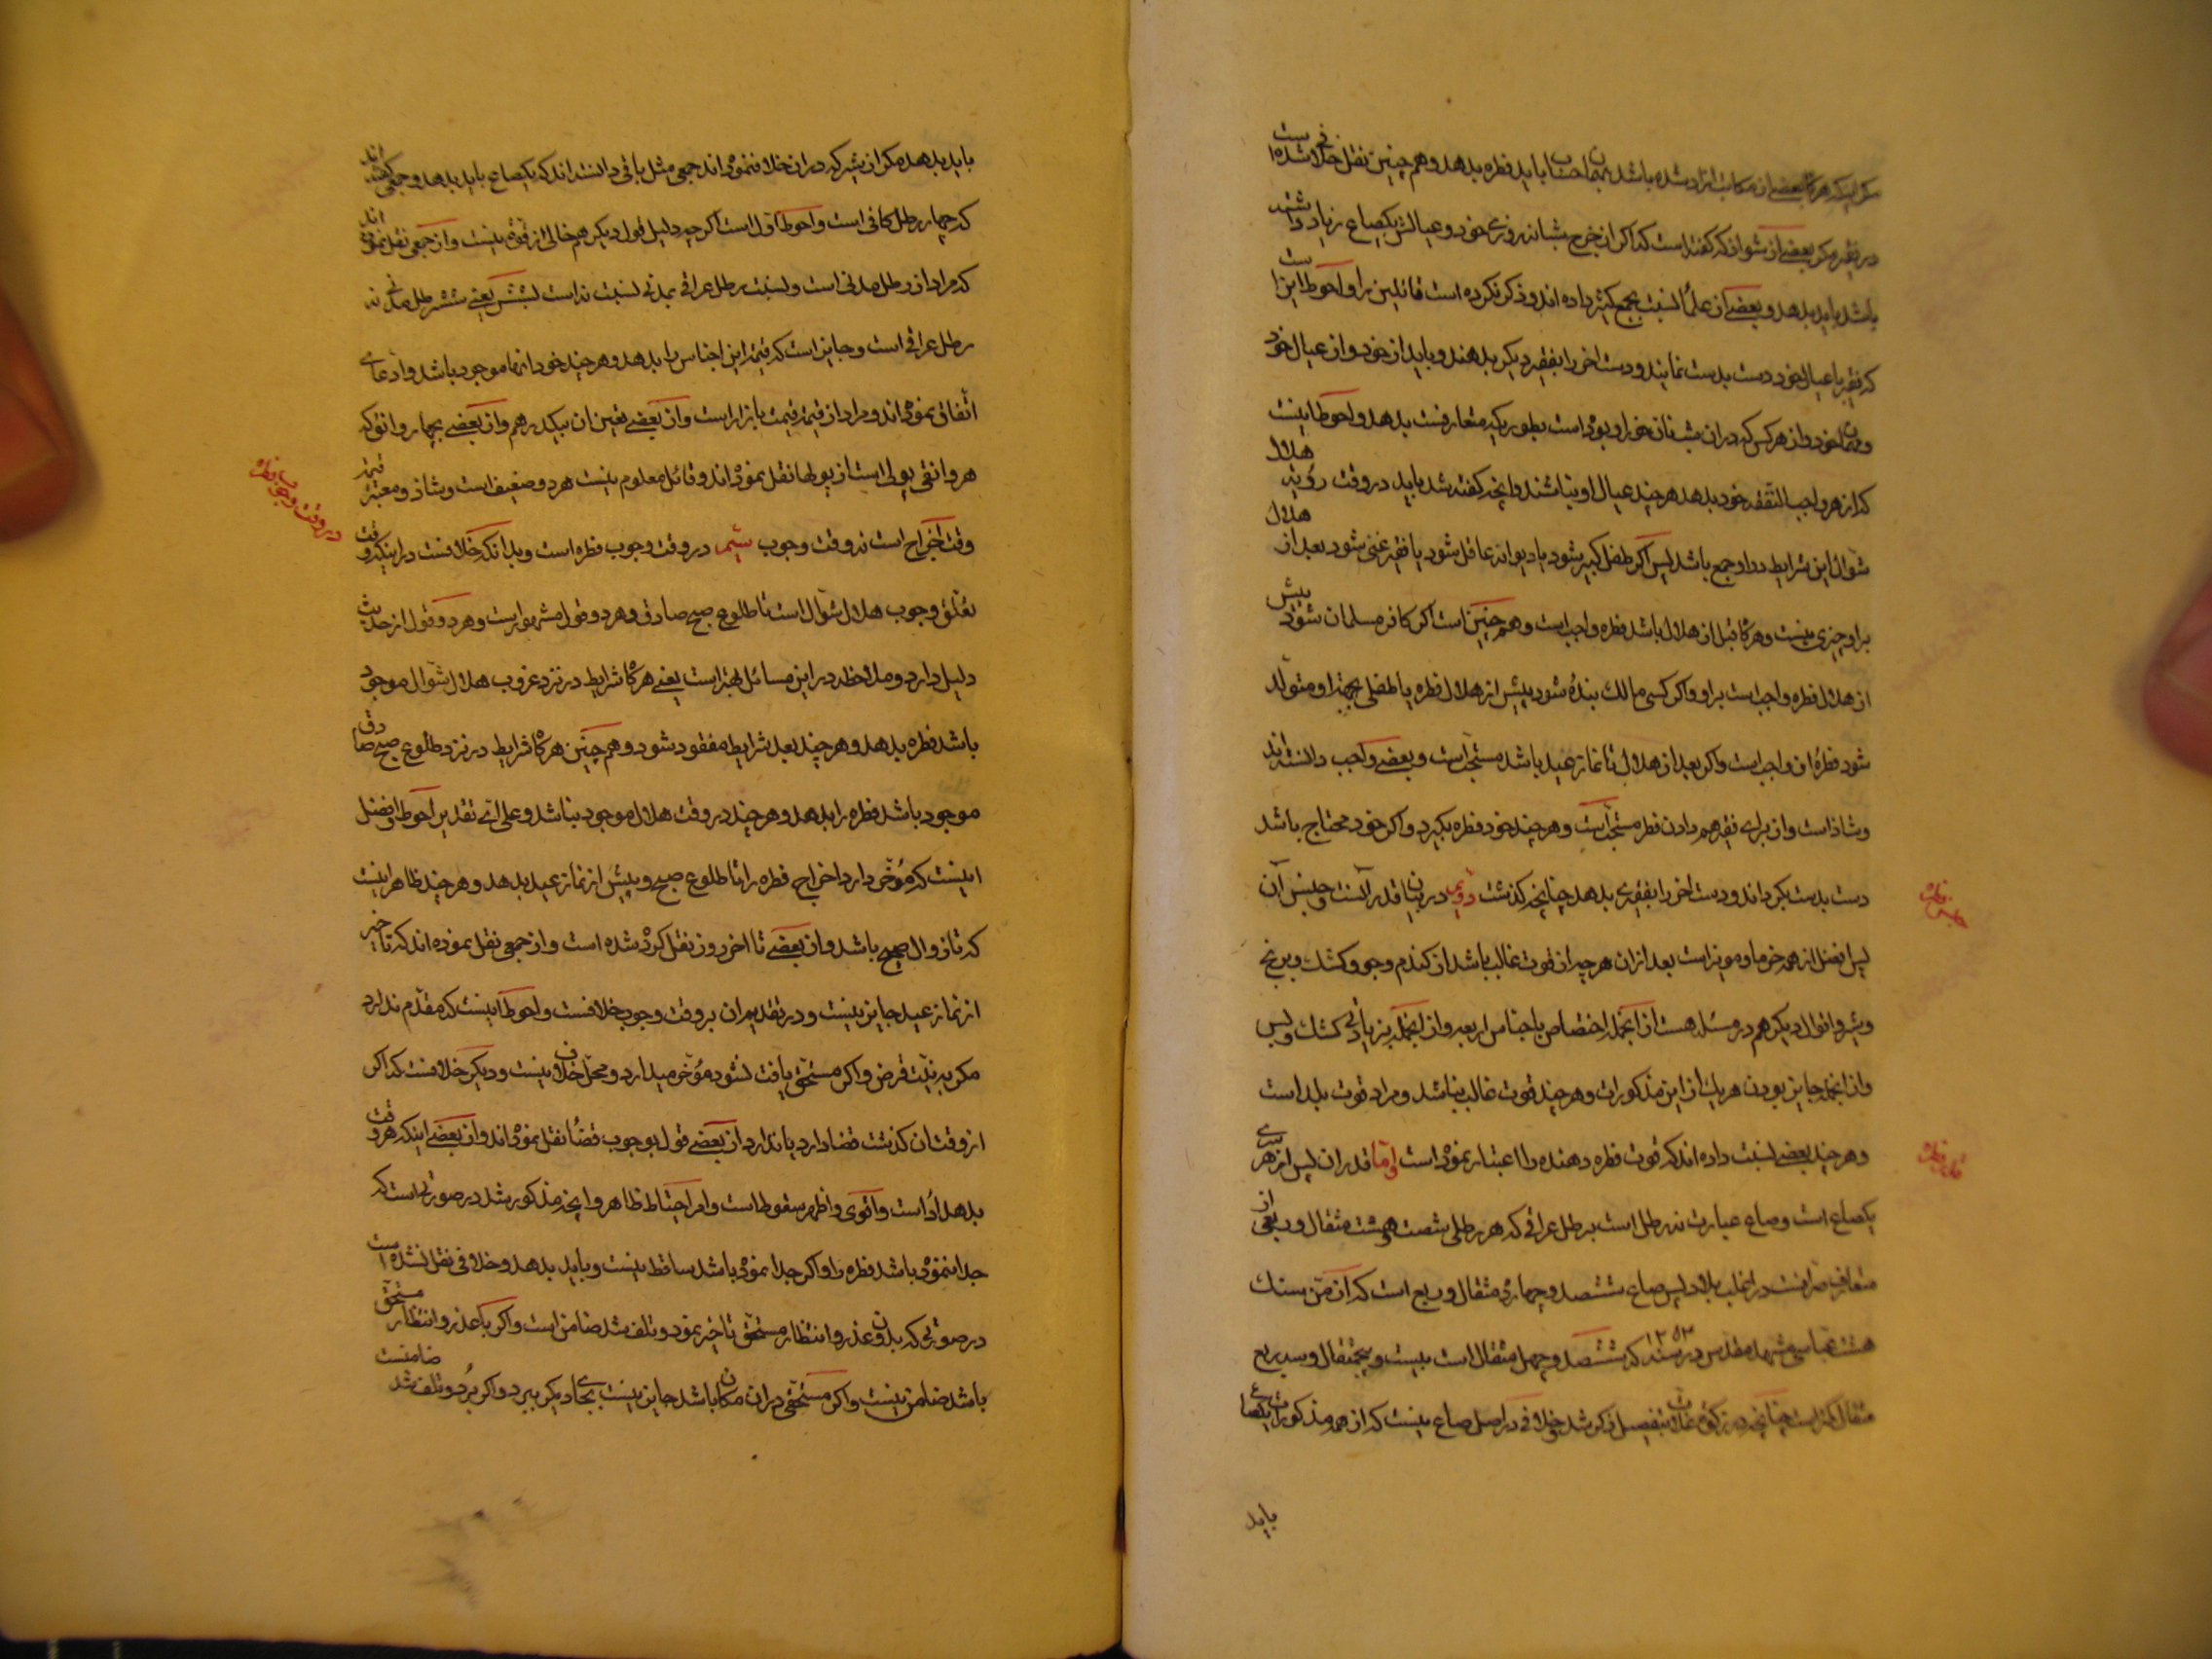 مگر اینکه هرگاه بعضی از مکاتب ازاد شده باشد بهمان حساب باید فطره بدهد و هم چنین نقل خلافی شده است
در فقیر مگر بعضی از شواذ که گفته است که اگر از خرج شبانه روزی خود و عیالش یکصاع زیاد داشته
باشد باید بدهد و بعضی از علما نسبت بجمع کثیر داده اند و ذکر نکرده است قائلین را و احوط این است
که فقیر با عیال خود دست بدست نمایند و دست اخر را بفقیر دیگر بدهند و باید از خود و از عیال خود
و مهمان خود و از هر کس که در ان شب نان خور او بوده است بطوریکه متعارفست بدهد و احوط اینست
که از هر واجب النفقه خود بدهد هر چند عیال او نباشند و انچه گفته شد باید در وقت رؤیة هلال
شوال این شرایط در او جمع باشد پس اگر طفل کبیر شود یا دیوانه عاقل شود یا فقیر غنی شود بعد از هلال
براو چیزی نیست و هرگاه قبل از هلال باشد فطره واجب است و هم چنین است اگر کافر مسلمان شود پیش
از هلال فطره واجب است براو و اگر کسی مالک بنده شود پیش از هلال فطره یا طفلی بجهة او متولد
شود فطره ان واجب است و اگر بعد از هلال تا نماز عید باشد مستحب است و بعضی واجب دانسته اند
و شاذ است و از برای فقیر هم دادن فطره مستحب است و هر چند خود فطره بگیرد و اگر خود محتاج باشد
دست بدست بگرداند و دست اخر را بفقیری بدهد چنانچه گذشت دویم در بیان قدر انست و جنس آن
جنس فطره
پس افضل از همه خرما و مویز است بعد از ان هر چه از قوت غالب باشد از گندم و جو و کشک و برنج
و شیر و اقوال دیگر هم در مسئله هست از انجمله اختصاص باجناس اربعه و از انجمله بزیادتی کشک و بس
و از انجمله جایز بودن هر یک از این مذکورات و هر چند قوت غالب نباشد و مراد قوت بلد است
و هر چند بعضی نسبت داده اند که قوت فطره دهنده را اعتبار نموده است و اما قدر ان پس از هر سری
قدر فطره
یکصاع است و صاع عبارت نه رطل است برطل عراقی که هر رطلی شصت و هشت مثقال و ربعی از
متعارف صرافست در اغلب بلاد پس صاع ششصد و چهارده مثقال و ربع است که از من سنک
هشت عباسی مشهد مقدس در سنه ١٢٥٣ که ششصد و چهل مثقال است بیست و پنجمثقال و سه ربع
مثقال کمتر است چنانچه در زکوة غلات بتفصیل ذکر شد خلافی در اصل صاع نیست که از همه مذکورات یکصاع
باید
باید بدهد مگر از شیر که در ان خلاف نموده اند جمعی مثل باقی دانسته اند که یکصاع باید بدهد و جمعی گفته اند
که چهار رطل کافی است و احوط اول است اگر چه دلیل قول دیگر هم خالی از قوتی نیست و از جمعی نقل نموده اند
که مراد از رطل مدنی است و نسبت رطل عراقی بمدنی نسبت نه است بشش یعنی شش رطل مدنی نه
رطل عراقی است و جایز است که قیمة این اجناس را بدهد و هر چند خود انها موجود باشد و ادعای
اتفاق نموده اند و مراد از قیمة قیمت بازار است و از بعضی تعین ان بیکدرهم و از بعضی بچهار دانق که
هر دانقی پولی است از پولها نقل نموده اند و قائل معلوم نیست هر دو ضعیف است و شاذ و معتبر قیمة
وقت اخراج است نه وقت وجوب سیم در وقت وجوب فطره است و بدانکه خلافست در اینکه وقت
در وقت وجوب فطره
تعلق وجوب هلال شوال است تا طلوع صبح صادق و هر دو قول مشهور است و هر دو قول از حدیث
دلیل دارد و ملاحظه در این مسائل بهتر است یعنی هرگاه شرایط در نزد غروب هلال شوال موجود
باشد فطره بدهد و هر چند بعد شرایط مفقود شود و هم چنین هرگاه شرایط در نزد طلوع صبح صادق
موجود باشد فطره را بدهد و هر چند در وقت هلال موجود نباشد و علی ای تقدیر احوط و افضل
اینست که مؤخر دارد اخراج فطره را تا طلوع صبح و پیش از نماز عید بدهد و هر چند ظاهر اینست
که تا زوال صحیح باشد و از بعضی تا اخر روز نقل کرده شده است و از جمعی نقل نموده اند که تاخیر
از نماز عید جایز نیست و در تقدیم ان بر وقت وجوب خلافست و احوط اینست که مقدم ندارد
مگر به نیت قرض و اگر مستحق یافت نشود مؤخر میدارد و محل خلاف نیست و دیگر خلافست که اگر
از وقت ان گذشت قضا دارد یا ندارد از بعضی قول بوجوب قضا نقل نموده اند و از بعضی اینکه هر وقت
بدهد ادا است و اقوی و اظهر سقوط است و امر احتیاط ظاهر و انچه مذکور شد در صورتی است که
جدا ننموده باشد فطره را و اگر جدا نموده باشد ساقط نیست و باید بدهد و خلافی نقل نشده است
در صورتی که بدون عذر و انتظار مستحق تاخیر نمود و تلف شد ضامن است و اگر با عذر و انتظار مستحق
باشد ضامن نیست و اگر مستحقی در ان مکان باشد جایز نیست بجای دیگر ببرد و اگر برد و تلف شد ضامنست